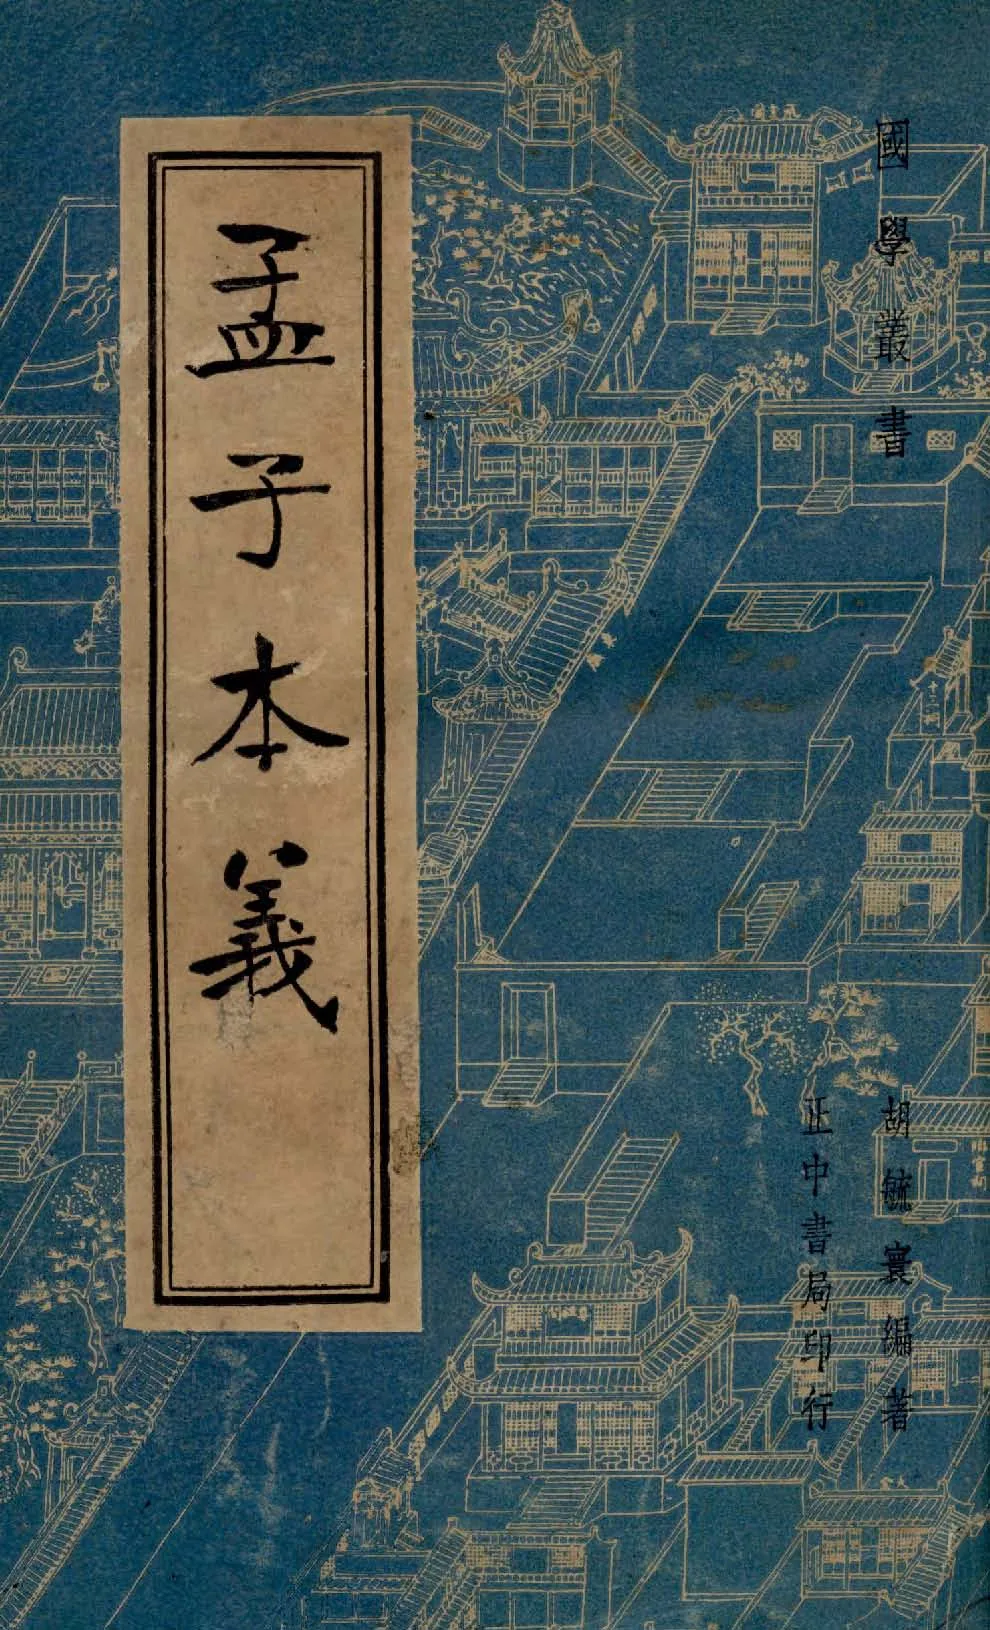 國學叢書
胡毓寰編著
正中書局印行
孟子本義